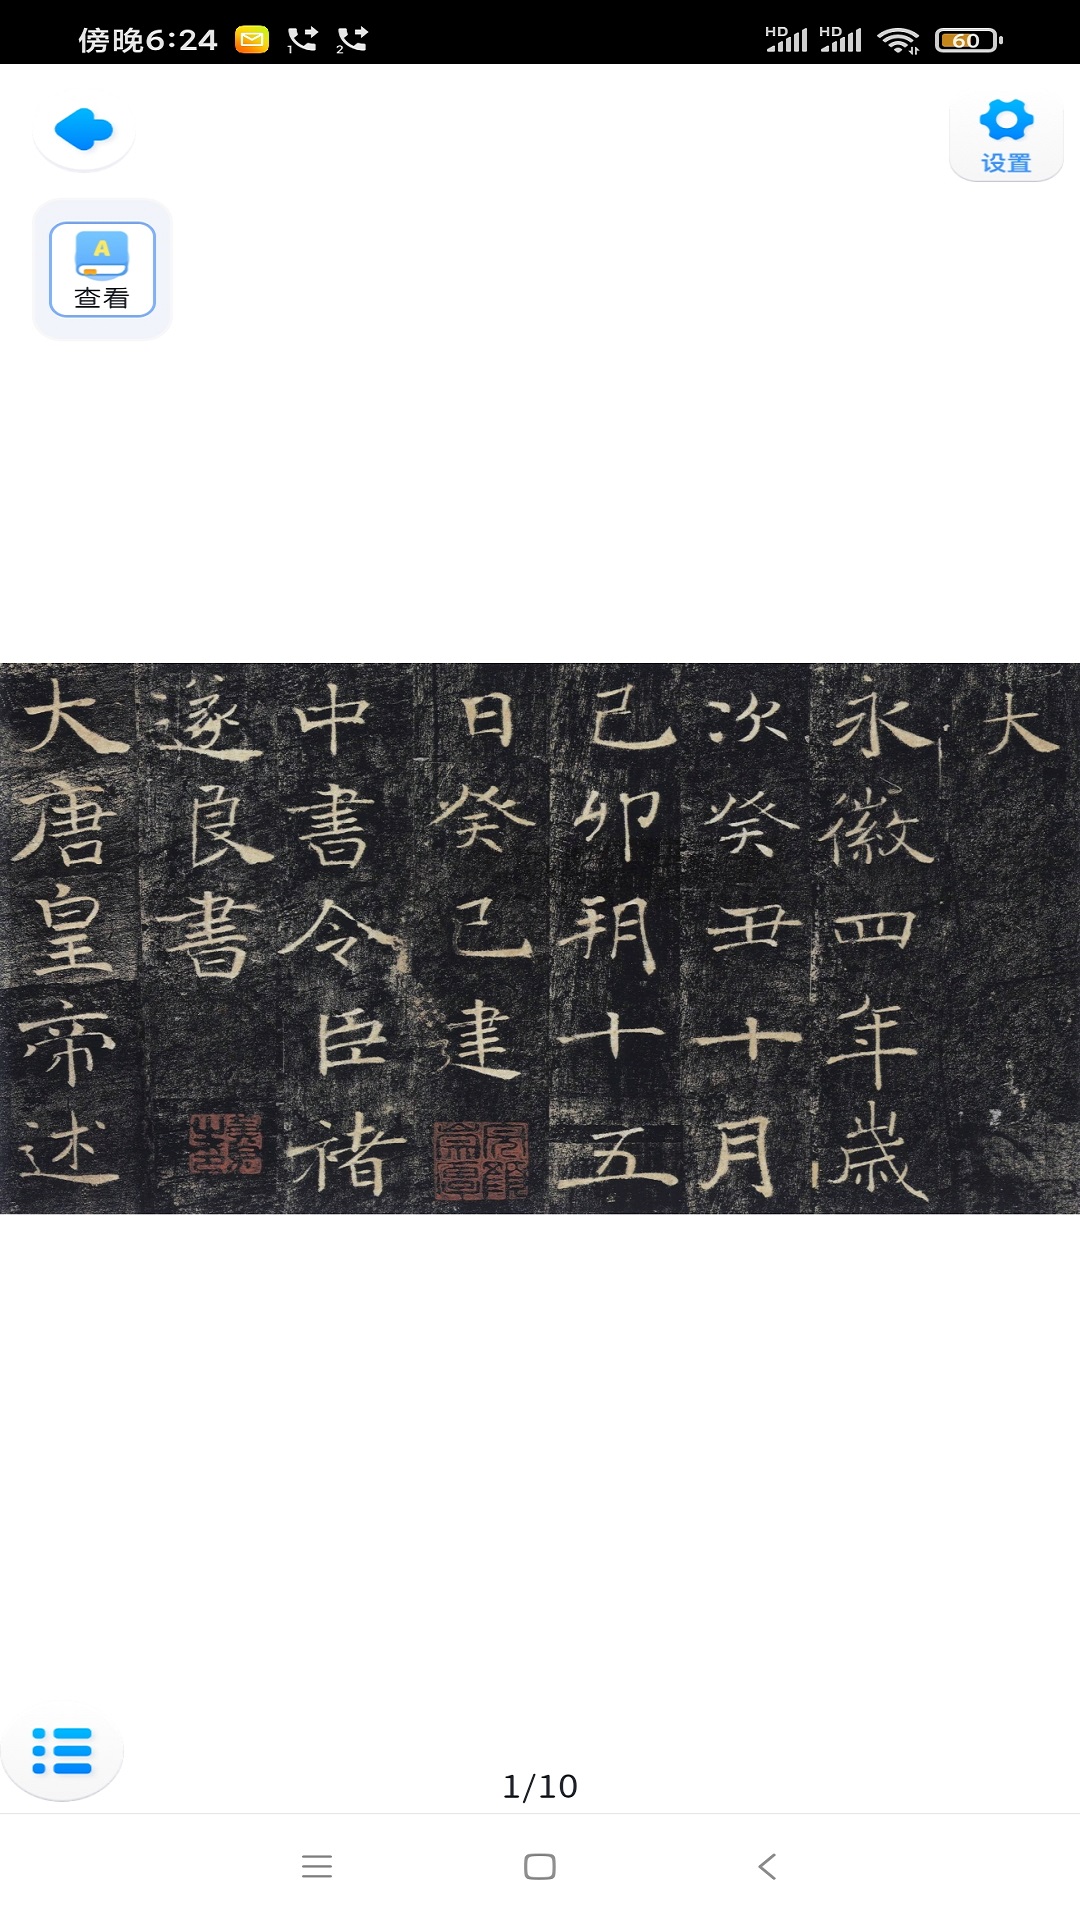 傍晚6:24
1
2
HD
HD
60
设置
A
查看
大
永徽四年歲
次癸丑十月
己卯朔十五
日癸巳建
中書令臣褚
遂良書
大唐皇帝述
1/10